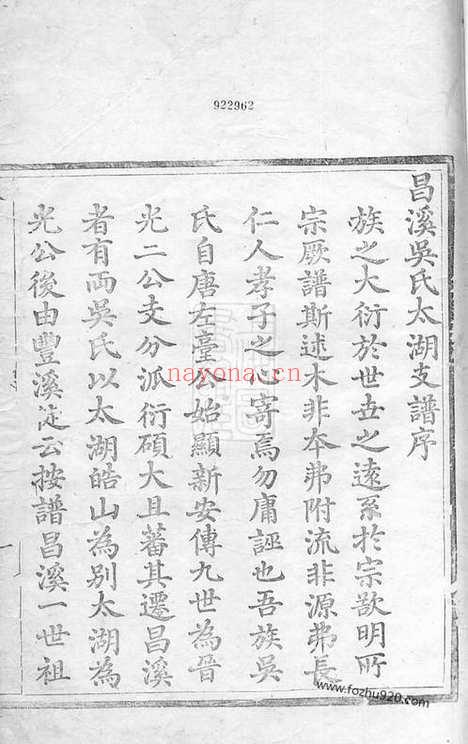 922962
昌溪吳氏太湖支譜序
族之大衍於世世之遠系於宗欲明所
宗厥譜斯述木非本弗附流非源弗長
仁人孝子之心寄焉勿庸誣也吾族吳
氏自唐左臺公始顯新安傳九世為晉
光二公支分派衍碩大且蕃其遷昌溪
者有两吳氏以太湖皓山為别太湖為
光公後由豐溪徙云按譜昌溪一世祖
nayona.cn
www.fozhu920.com